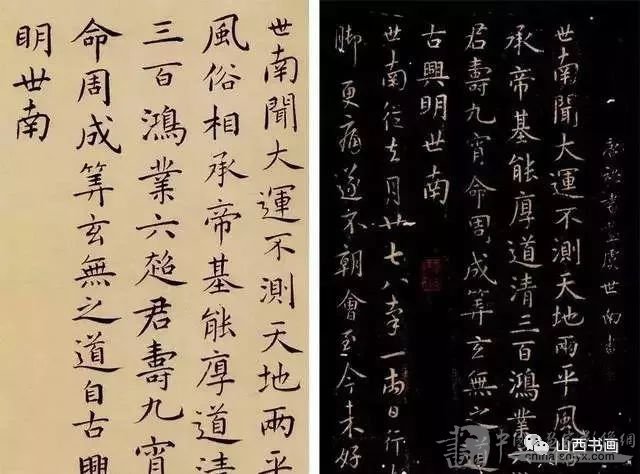 世南聞大運不測天地兩平
風俗相承帝基能厚道清
三百鴻業六超君壽九霄
命周成筭玄無之道自古興
明世南
唐秘書監虞世南書
世南聞大運不測天地兩平風
承帝基能厚道清三百鴻業
君壽九霄命周成筭玄無之
古興明世南
世南從去月廿七八率一兩日行
脚更痛遂不朝會至今未好
山西书画